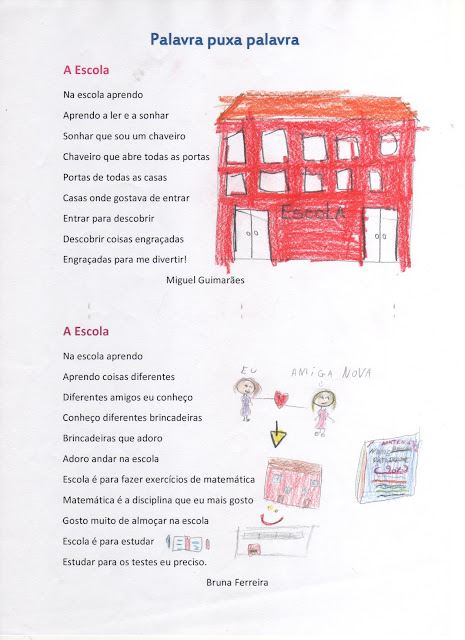 Palavra puxa palavra
A Escola
Na escola aprendo
Aprendo a ler e a sonhar
Sonhar que sou um chaveiro
Chaveiro que abre todas as portas
Portas de todas as casas
Casas onde gostava de entrar
Entrar para descobrir
Descobrir coisas engraçadas
Engraçadas para me divertir!
Miguel Guimarães
EscoLA
A Escola
Na escola aprendo
Aprendo coisas diferentes
Diferentes amigos eu conheço
Conheço diferentes brincadeiras
Brincadeiras que adoro
Adoro andar na escola
Escola é para fazer exercícios de matemática
Matemática é a disciplina que eu mais gosto
Gosto muito de almoçar na escola
Escola é para estudar
Estudar para os testes eu preciso.
Bruna Ferreira
EU
AMiGA NOVA